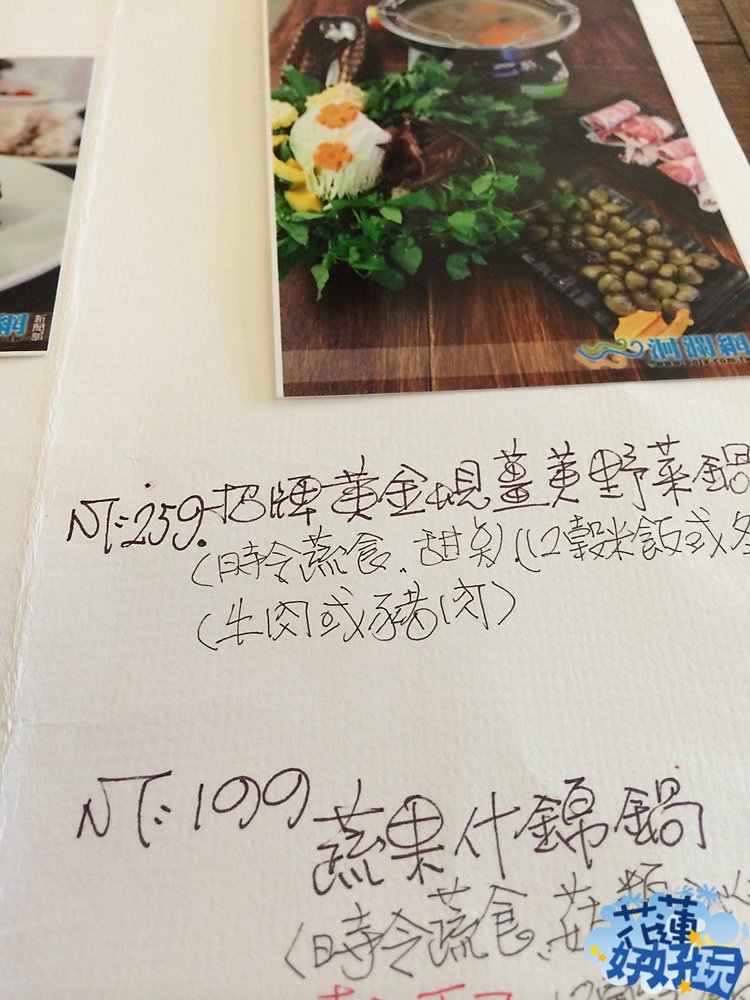 洄瀾網
www.pojs.com.tw
NT:259.招牌黃金蜆薑黃野菜鍋
(時令蔬食.甜點).(12穀米飯或冬
(牛肉或豬肉)
NT:199蔬果什錦鍋
(時令蔬食.菇類
花蓮
好好玩